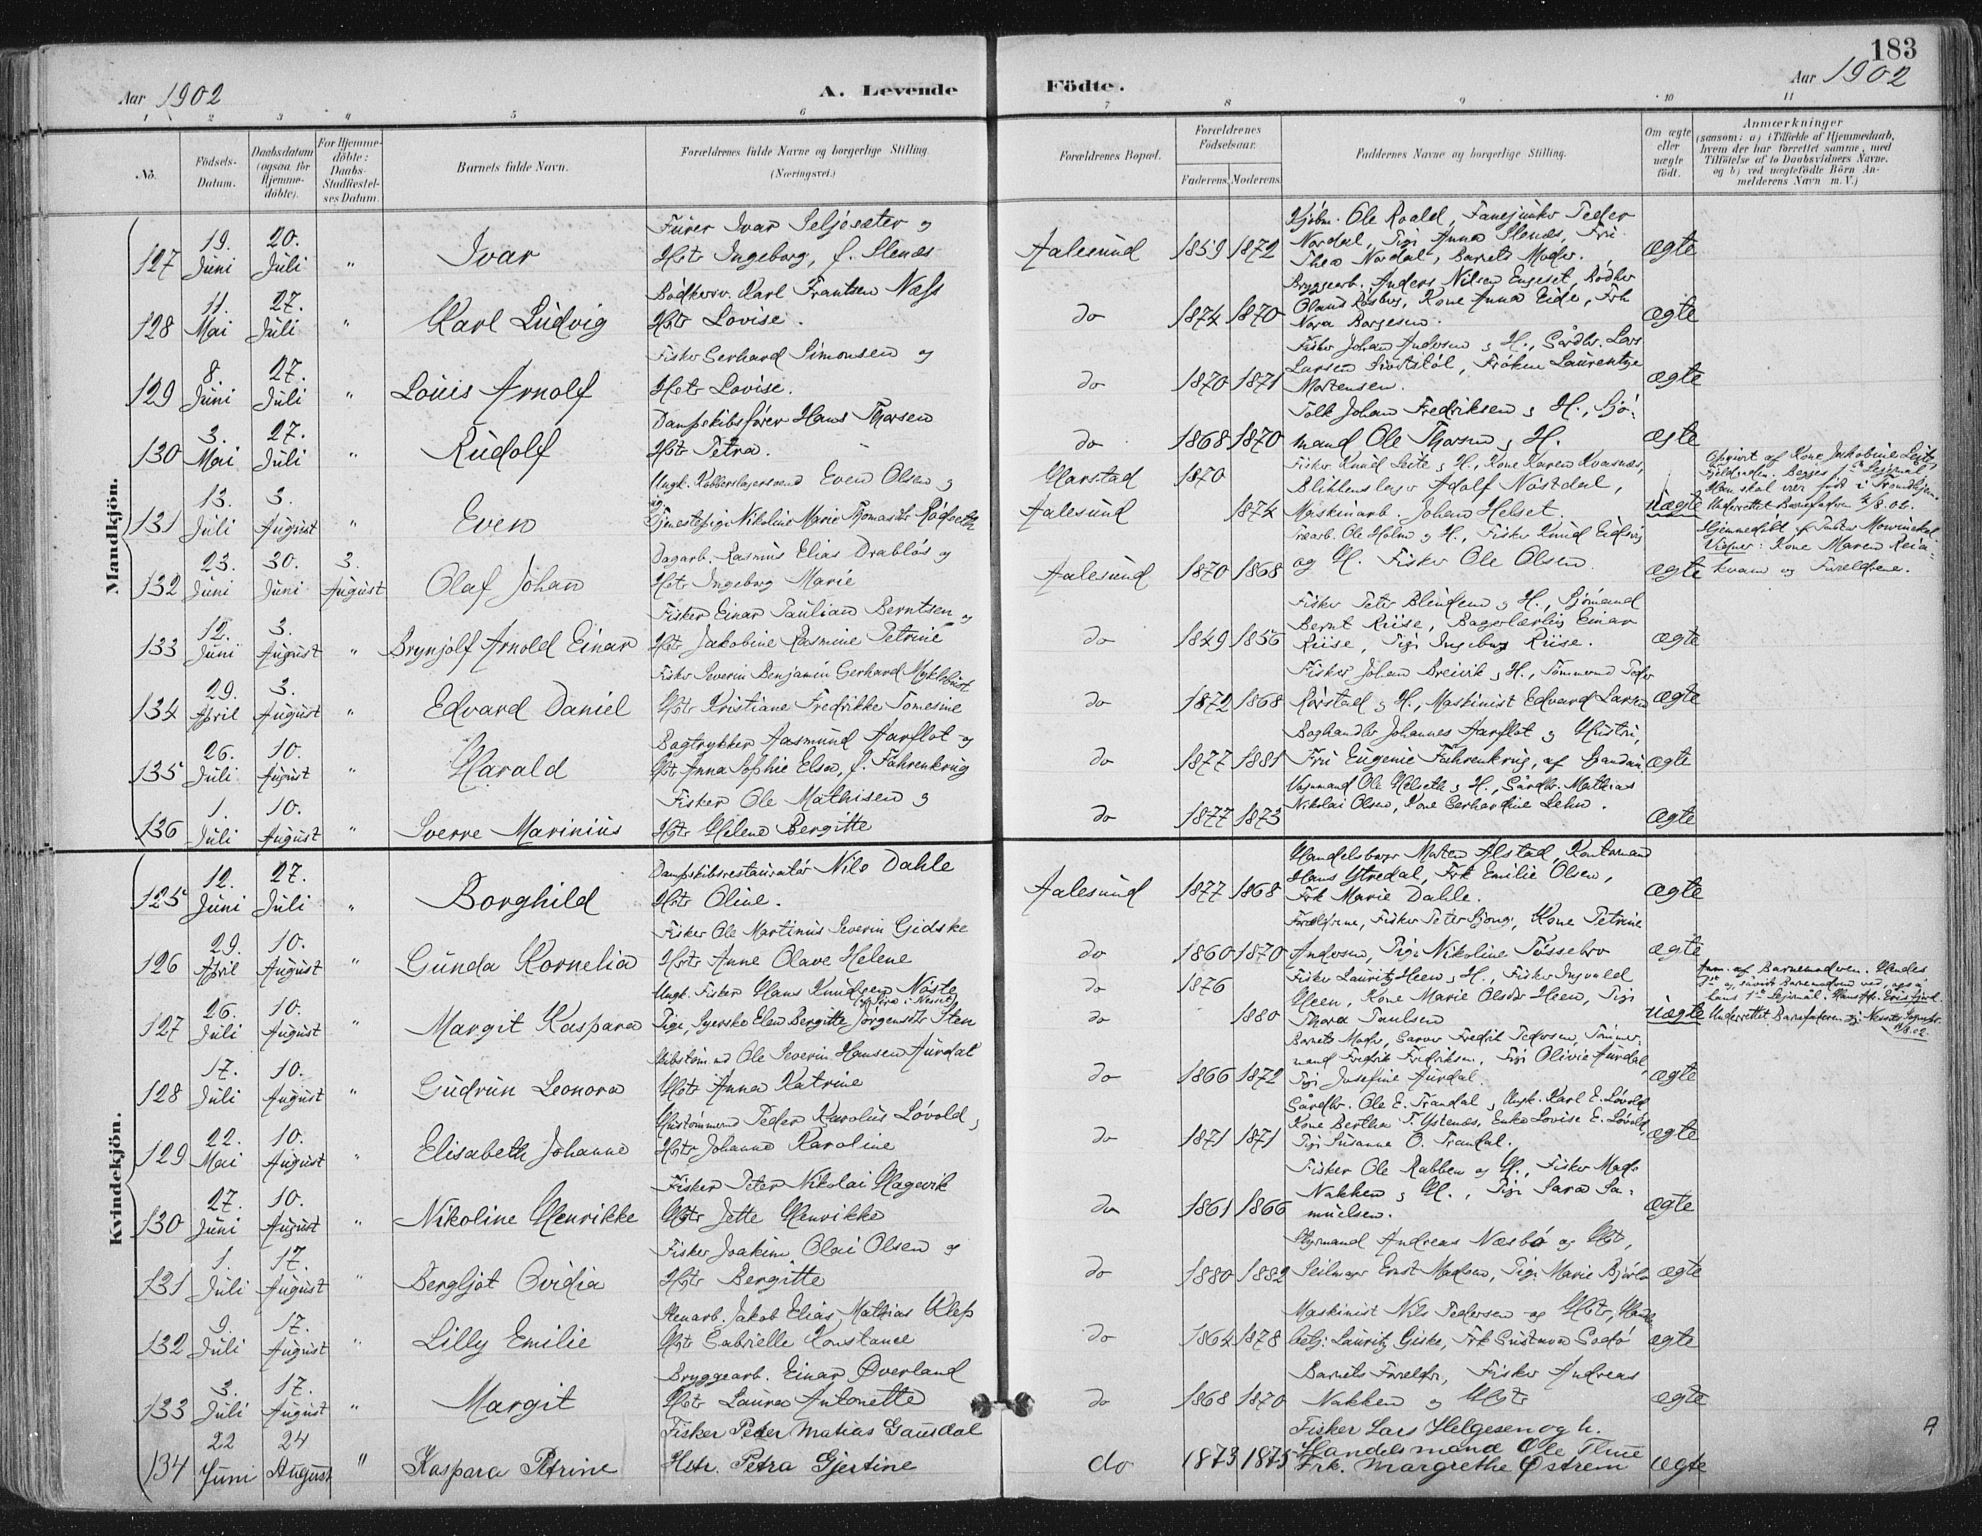 183
Aar 1902
A. Levende
Födte.
Aar 1902
1 2 3 4 5 6 7 8 9 10 11
No.
Födsels-Datum.
Daabsdatum (ogsaa for Hjemme-döbte).
For Hjemme-döbte: Daabs-Stadfæstel-ses Datum.
Barnets fulde Navn.
Forældrenes fulde Navne og borgerlige Stilling. (Næringsvei.)
Forældrenes Bopæl.
Forældrenes Födselsaar.
Faderens. Moderens.
Faddernes Navne og borgerlige Stilling.
Om ægte eller uægte födt.
Anmærkninger
(saasom: a) i Tilfælde af Hjemmedaab,
hvem der har forrettet samme, med
Tilföielse af to Daabsvidners Navne,
og b) ved uægtefödte Börn An-
melderens Navn m. V.)
Mandkjön.
127 19. Juni 20. Juli " Ivar
Fürer Ivar Seljesæter og
Hstr Ingeborg, f. Stenæs
Aalesund 1859 1872
Kjöbm. Ole Roald, Fanejunker Peder
Nordal, Pigi Anna Stenæs, Fru
Thea Nordal, Barnets Moder.
ægte
128 11. Mai 27. Juli " Karl Ludvig
Bödkersv. Karl Frantsen Næss
Hstr Lovise.
do 1874 1870
Bryggearb. Anders Nilsen Engeset, Bödker
Kone Anna Eide, Frk
Nora Borgesen.
ægte
129 8. Juni 27. Juli " Louis Arnolf
Fisker Gerhard Simonsen og
Hstr Lovise.
do 1870 1871
Fisker Johan Andersen & H., Gårdbr. Lars
Larsen Frøken Laurentze
Mortensen.
ægte
130 3. Mai 27. Juli " Rudolf
Dampskibsfører Hans Thorsen
Hstr Petra.
do 1868 1870
Tolk Johan Fredriksen & H., Sjö-
mand Ole Thorsen & H.
ægte
131 13. Juli 3. August " Even
Ungk. Kobberslagersvend Even Olsen &
Tjenestepige Nikoline Marie Thomasdtr Rødseth
Harstad 1870
Aalesund 1874
Fisker Knud Leite & H., Kone Karen Kvasnes,
Blikkenslager Adolf Nöstdal,
Maskinarb. Johan Helset.
uægte
Opgivet af Kone Jakobine Leite,
Begges 1ste Leiermål
Han skal vær född i Trondhjem.
Underrettet Barnefaderen 4/8.02.
132 23. Juni 30. Juni 3. August Olaf Johan
Dagarb. Rasmus Elias Drabløs og
Hstr Ingeborg Marie
Aalesund 1870 1868
Træarb. Ole Holm og H., Fisker Knud Eidsvig
og H. Fisker Ole Olsen.
ægte
Hjemmedöbt af Mowinckel
Vidner: Kone Maren Reia-
kvam og Forældrene.
133 12. Juni 3. August " Brynjolf Arnold Einar
Fisker Einar Paulian Berntsen og
Hstr Jakobine Rasmine Petrine
do 1849 1856
Fisker Peter Blindem & H., Sjömand
Bernt Riise, Bagerlærling Einar
Riise, Pigi Ingeborg Riise.
ægte
134 29. April 3. August " Edvard Daniel
Fisker Severin Benjamin Gerhard Myklebust
Hstr Kristiane Fredrikke Tomesine
do 1872 1868
Fisker Johan Breivik & H., Tömmermd Peder
Rörstad & H., Maskinist Edvard Larsen
ægte
135 26. Juli 10. August " Harald
Bogtrykker Aasmund Aarflot og
Hst Anna Sophie Elsa, f. Fahrenkrug
do 1877 1881
Boghandler Johannes Aarflot & Hustru,
Fru Eugenie Fahrenkrug, af
ægte
136 1. Juli 10. August " Sverre Marinius
Fisker Ole Mathisen &
Hstr Helene Bergitte
do 1877 1873
Vognmand Ole Helseth & H., Gårdbr. Mathias
Nikolai Olsen, Kone Gerhardine Lehn.
ægte
Kvindekjön.
125 12. Juni 27. Juli " Borghild
Dampskibsrestauratör Nils Dahle
Hstr Oline.
Aalesund 1877 1868
Handelsborger Morten Alstad, Kontormand
Hans Ytredal, Frk Emilie Olsen,
Frk Marie Dahle.
ægte
126 29. April 10. August " Gunda Kornelia
Fisker Ole Martinus Severin Gidske
Hstr Anne Olave Helene
do 1860 1870
Forældrene, Fisker Peter Kone Petrine
Andersen, Pigi Nikoline Fossebro
ægte
127 26. Juli 10. August " Margit Kaspara
Ungk. Fisker Hans Knudsen Nöste
Pige, Syerske Elen Bergitte Jørgensdtr Sten
do 1876
do 1880
Fisker Lauritz Heen & H., Fisker Ingvald
Heen, Kone Marie Olsdtr Heen, Pigi
Thora Paulsen
uægte
Anm. af Barnemoderen. Hendes
1ste og, såvidt Barnemoderen ved, også
hans 1ste Leiermål.
Underrettet Barnefaderen
128 17. Juli 10. August " Gudrun Leonora
Skibstömmermd Ole Severin Hansen Aurdal
Hstr Anna Katrine
do 1866 1872
Barnets Moder, Garver Fredrik Pedersen, Tömmer-
mand Fredrik Fredriksen, Pigi Olivie Aurdal,
Pigi Josefine Aurdal.
ægte
129 22. Mai 10. August " Elisabeth Johanne
Hustömmermd Peder Karolus Lövold,
Hstr Johanne Karoline
do 1871 1871
Gårdbr. Ole E. Trandal, Ungk. Karl E. Lövold
Kone Bertha T. Ystenæs, Enke Lovise E. Lövold,
Pigi Susanne O. Trandal.
ægte
130 27. Juni 10. August " Nikoline Henrikke
Fisker Peter Nikolai Hagevik
Hstr Jette Henrikke
do 1861 1866
Fisker Ole Rabben og H., Fisker Mads
Nakken & H., Pigi Sara Sa-
muelsen.
ægte
131 1. Juli 17. August " Bergljot Ovidia
Fisker Joakim Olai Olsen og
Hstr Bergitte
do 1880 1882
Styrmand Andreas Næsbö og Hst,
Seilmager Ernst Madsen, Pigi Marie
ægte
132 9. Juli 17. August " Lilly Emilie
Stenarb. Jakob Elias Mathias Klep
Hstr Gabrielle Konstance
do 1864 1878
Maskinist Nils Pedersen og Hstr, Hand.
betj: Lauritz Giske, Frk Gustava Godö
ægte
133 3. Juli 17. August " Margit
Bryggearb. Einar Øverland
Hstr Laura Antonette
do 1868 1870
Barnets Forældre, Fisker Andreas
Nakken & Hstr
ægte
134 22 Juni 24 August " Kaspara Petrine
Fisker Peder Matias Gausdal
Hstr. Petra Gjertine
do 1873 1875
Fisker Lars Helgesen og h.
Handelsmand Ole Flue
Frk. Margrethe Østrem
ægte